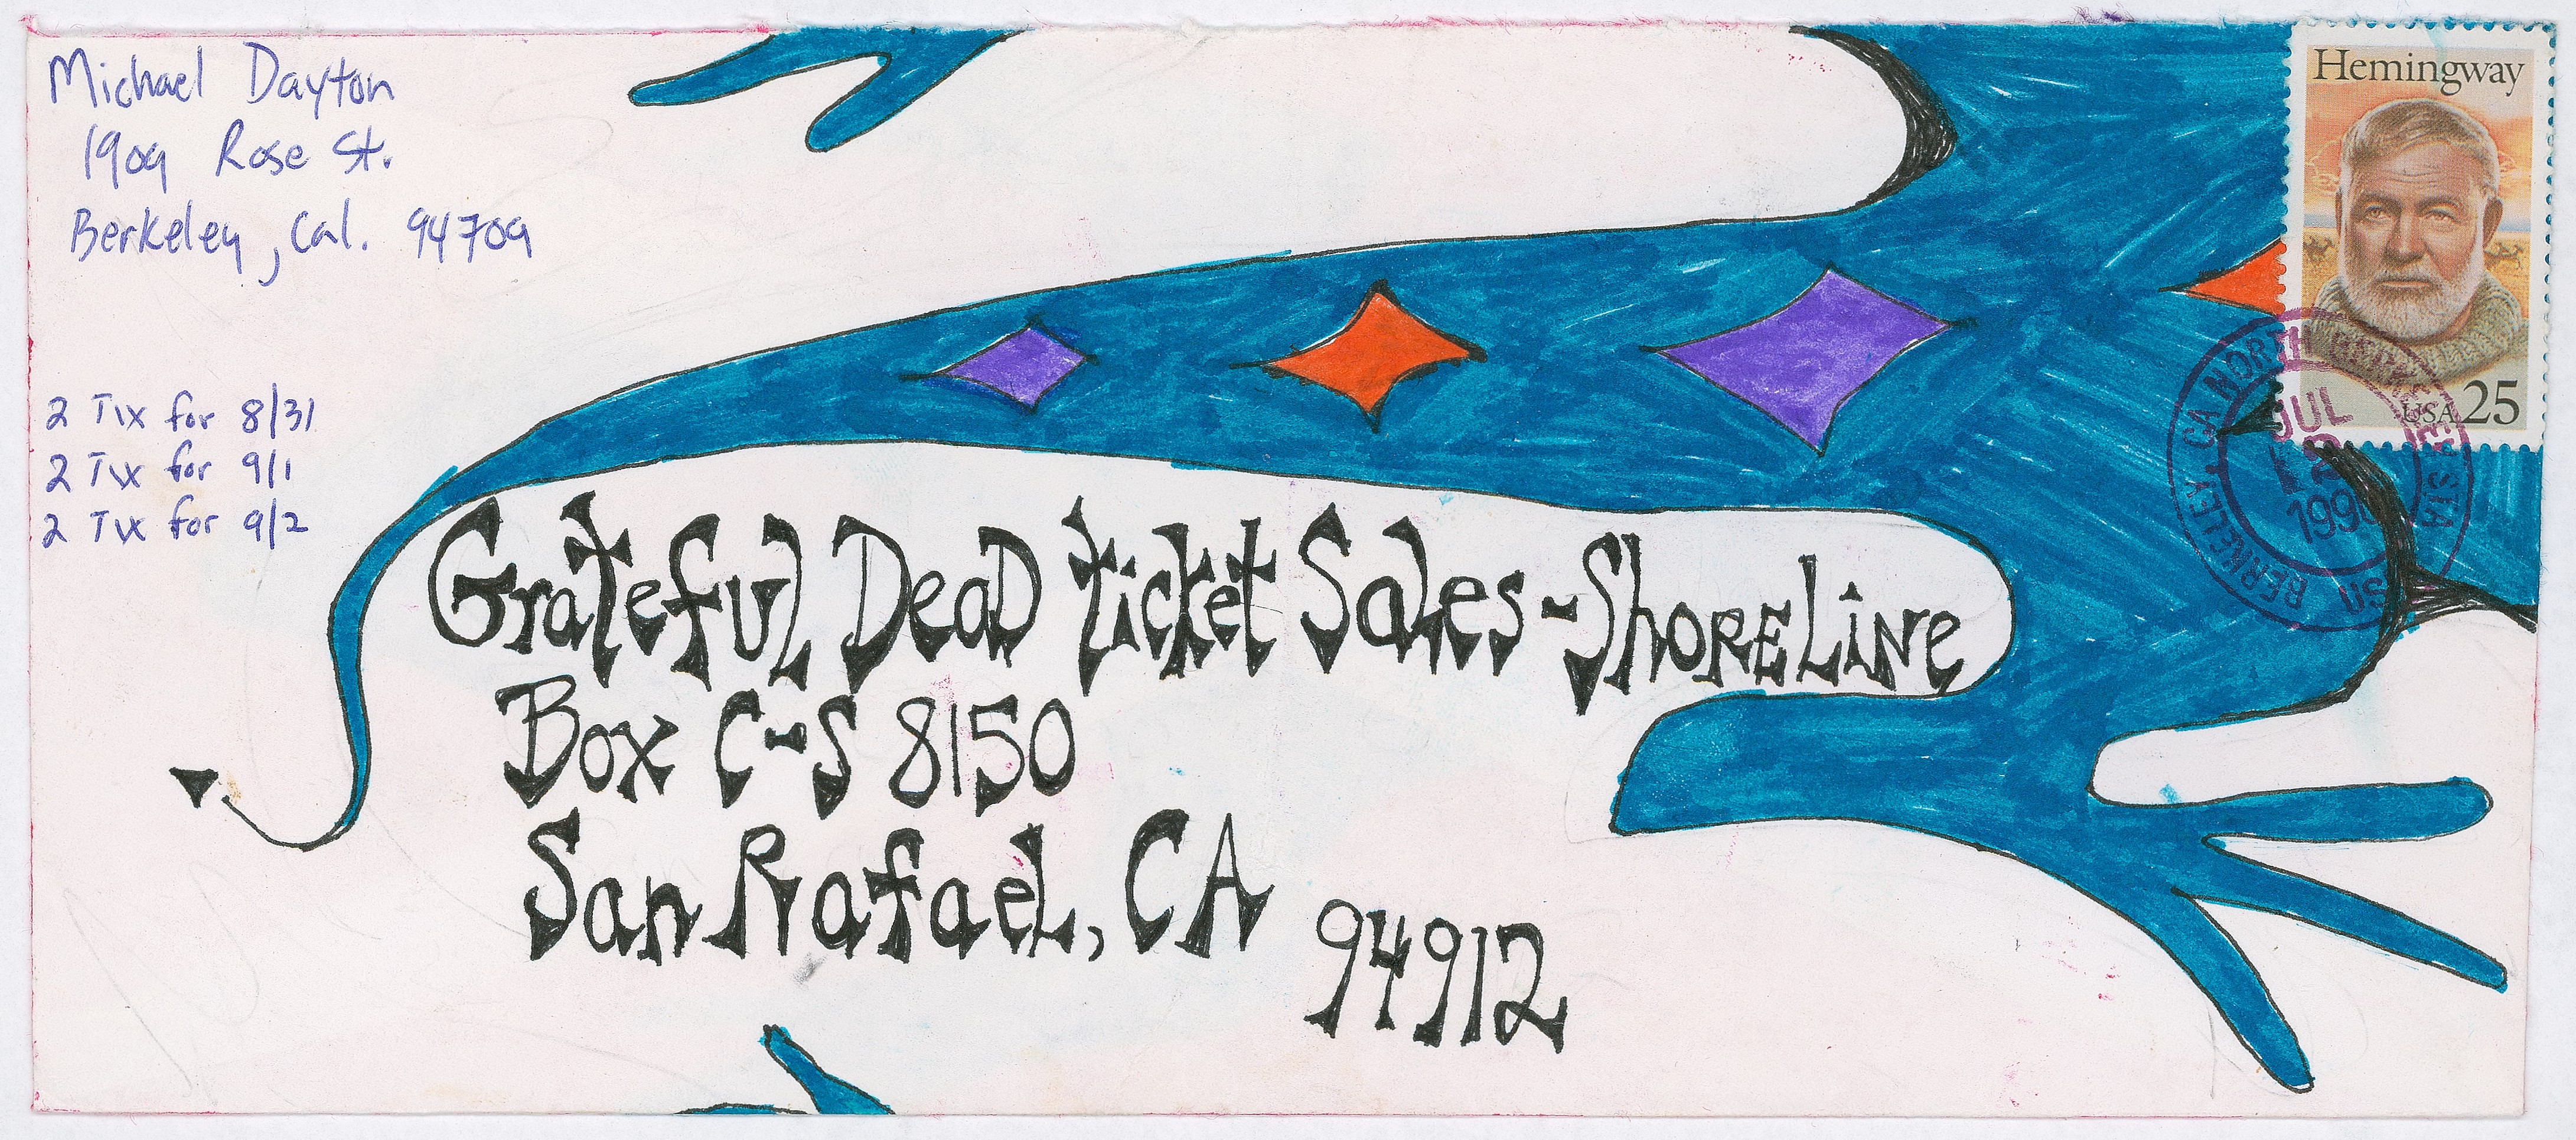 Michael Dayton
1909 Rose St.
Berkeley, Cal. 94709
2 Tix for 8/31
2 Tix for 9/1
2 Tix for 9/2
Grateful Dead Ticket Sales - Shoreline
Box C-S 8150
San Rafael, CA
94912
Hemingway
USA 25
BERKELEY, CA NORTH BERKELEY STA
JUL
1990